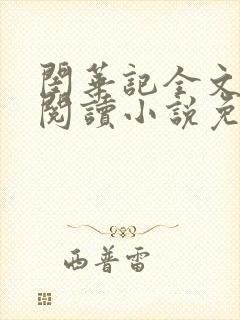 閨華記全文
閱讀小說免
西普雷